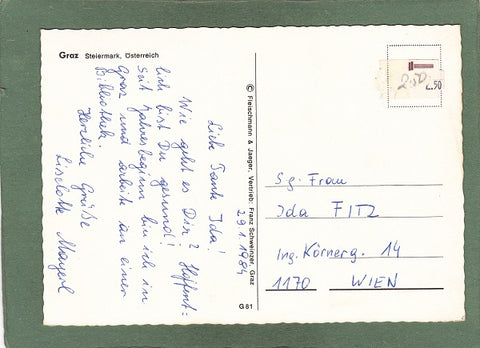 Graz Steiermark, Österreich
Liebe Tante Ida!
29.1.1984
Wie geht es Dir? Hoffent=
lich bist Du gesund!
Seit Jahresbeginn bin ich in
Graz und arbeite in einer
Bibliothek.
Herzliche Grüße
Liselotte Mayerl
© Fleischmann & Jaeger, Vertrieb: Franz Schweinzer, Graz
G81
2.50
Sg. Frau
Ida FITZ
Ing. Körnerg. 14
1170 WIEN